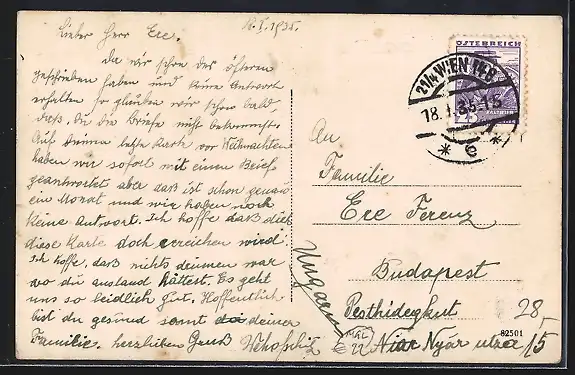 18.I.1935.
Lieber Herr Ere.
Da wir schon des öfteren
geschrieben haben und keine Antwort
erhalten so glauben wir schon bald,
daß, Du die Briefe nicht bekommst.
Auf Deine letzte Karte vor Weihnachten
haben wir sofort mit einem Brief
geantwortet aber daß ist schon genau
ein Monat und wir haben noch
keine Antwort. Ich hoffe daß dich
diese Karte doch erreichen wird.
Ich hoffe, daß nichts deinen war
wo du ausland hättest. Es geht
uns so leidlich gut. Hoffentlich
bist du gesund samt deiner
Familie. herzlichen Gruß
ÖSTERREICH
21/4 WIEN 112
18.I.35-15
* e *
An
Familie
Ere Ferenz
Budapest
Ungarn
Pesthidegkut
Nyár utca 15
28
82501